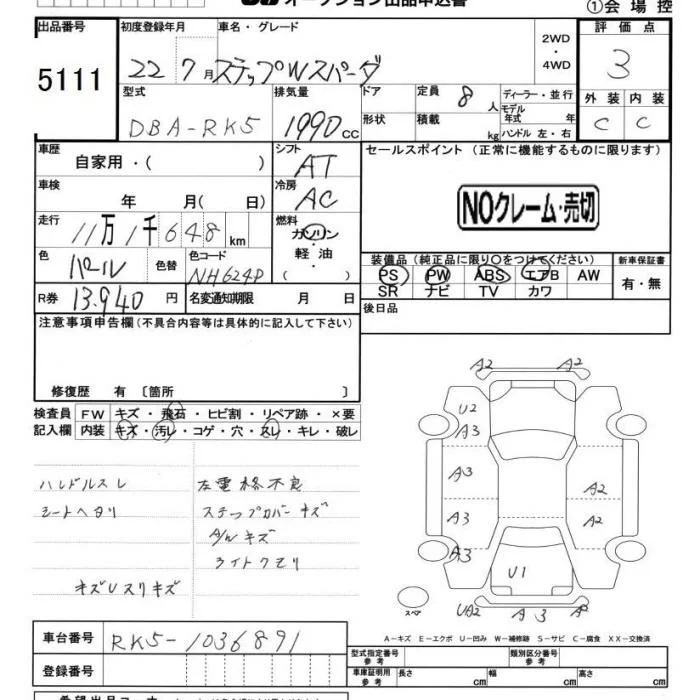 オークション出品申込書
①会場控
出品番号
5111
初度登録年月
22 7月
車名・グレード
ステップWスパーダ
2WD・4WD
評価点
3
外装 内装
C C
型式
DBA-RK5
排気量
1990 cc
ドア
形状
定員 8 人
積載 kg
ディーラー・並行
モデル年式 年
ハンドル 左・右
車歴
自家用・( )
シフト
AT
セールスポイント (正常に機能するものに限ります)
NOクレーム・売切
車検
年 月( 日)
冷房
AC
走行
11万1千648 km
燃料
ガソリン・軽油・( )
色
パール
色替
色コード
NH624P
装備品 (純正品に限り〇をつけてください)
PS PW ABS エアB AW
SR ナビ TV カワ
新車保証書
有・無
R券 13,940 円
名変通知期限 月 日
後日品
注意事項申告欄 (不具合内容等は具体的に記入して下さい)
修復歴 有 〔箇所 〕
検査員記入欄
FW キズ・飛石・ヒビ割・リペア跡・×要
内装 キズ・汚レ・コゲ・穴・スレ・キレ・破レ
ハンドルスレ
シートヘタリ
キズUスリキズ
左電格不良
ステップカバーキズ
A/Wキズ
ライトクモリ
A2 A2
U2
A3
A3
A2
A3
A2
A3
U1
スペア
UA2 A3 A2
A-キズ E-エクボ U-凹み W-補修跡 S-サビ C-腐食 XX-交換済
車台番号
RK5-1036891
登録番号
型式指定番号 参考
類別区分番号 参考
車庫証明用 参考
長さ cm
幅 cm
高さ cm
希望出品コーナー